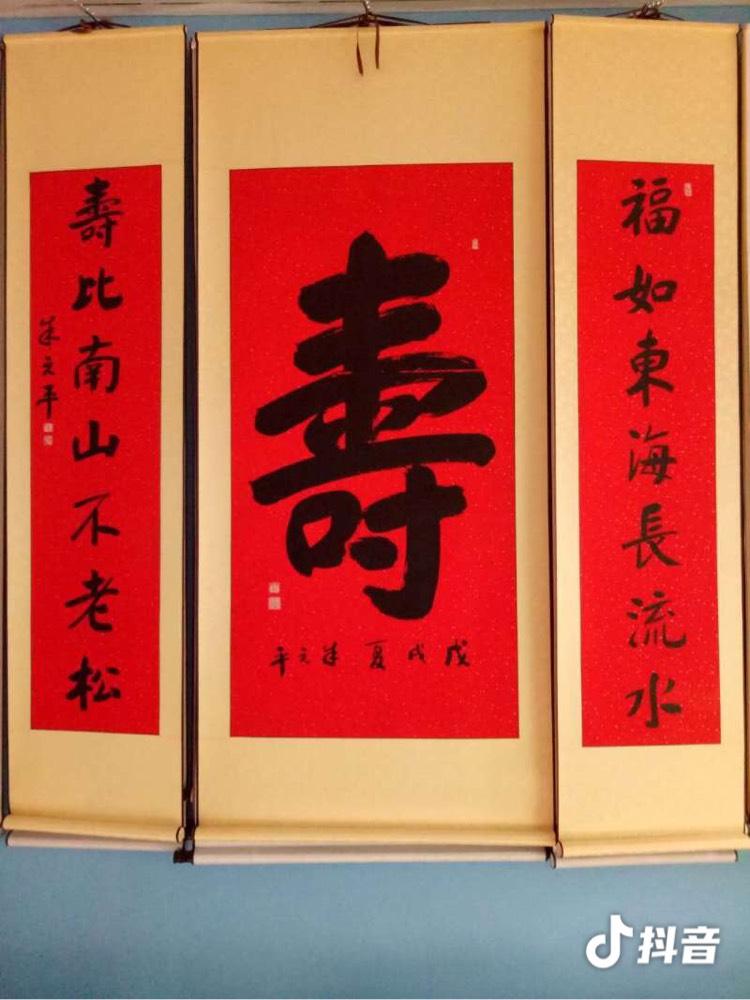 福如東海長流水
壽
戊戌夏 朱元平
壽比南山不老松
朱元平
抖音